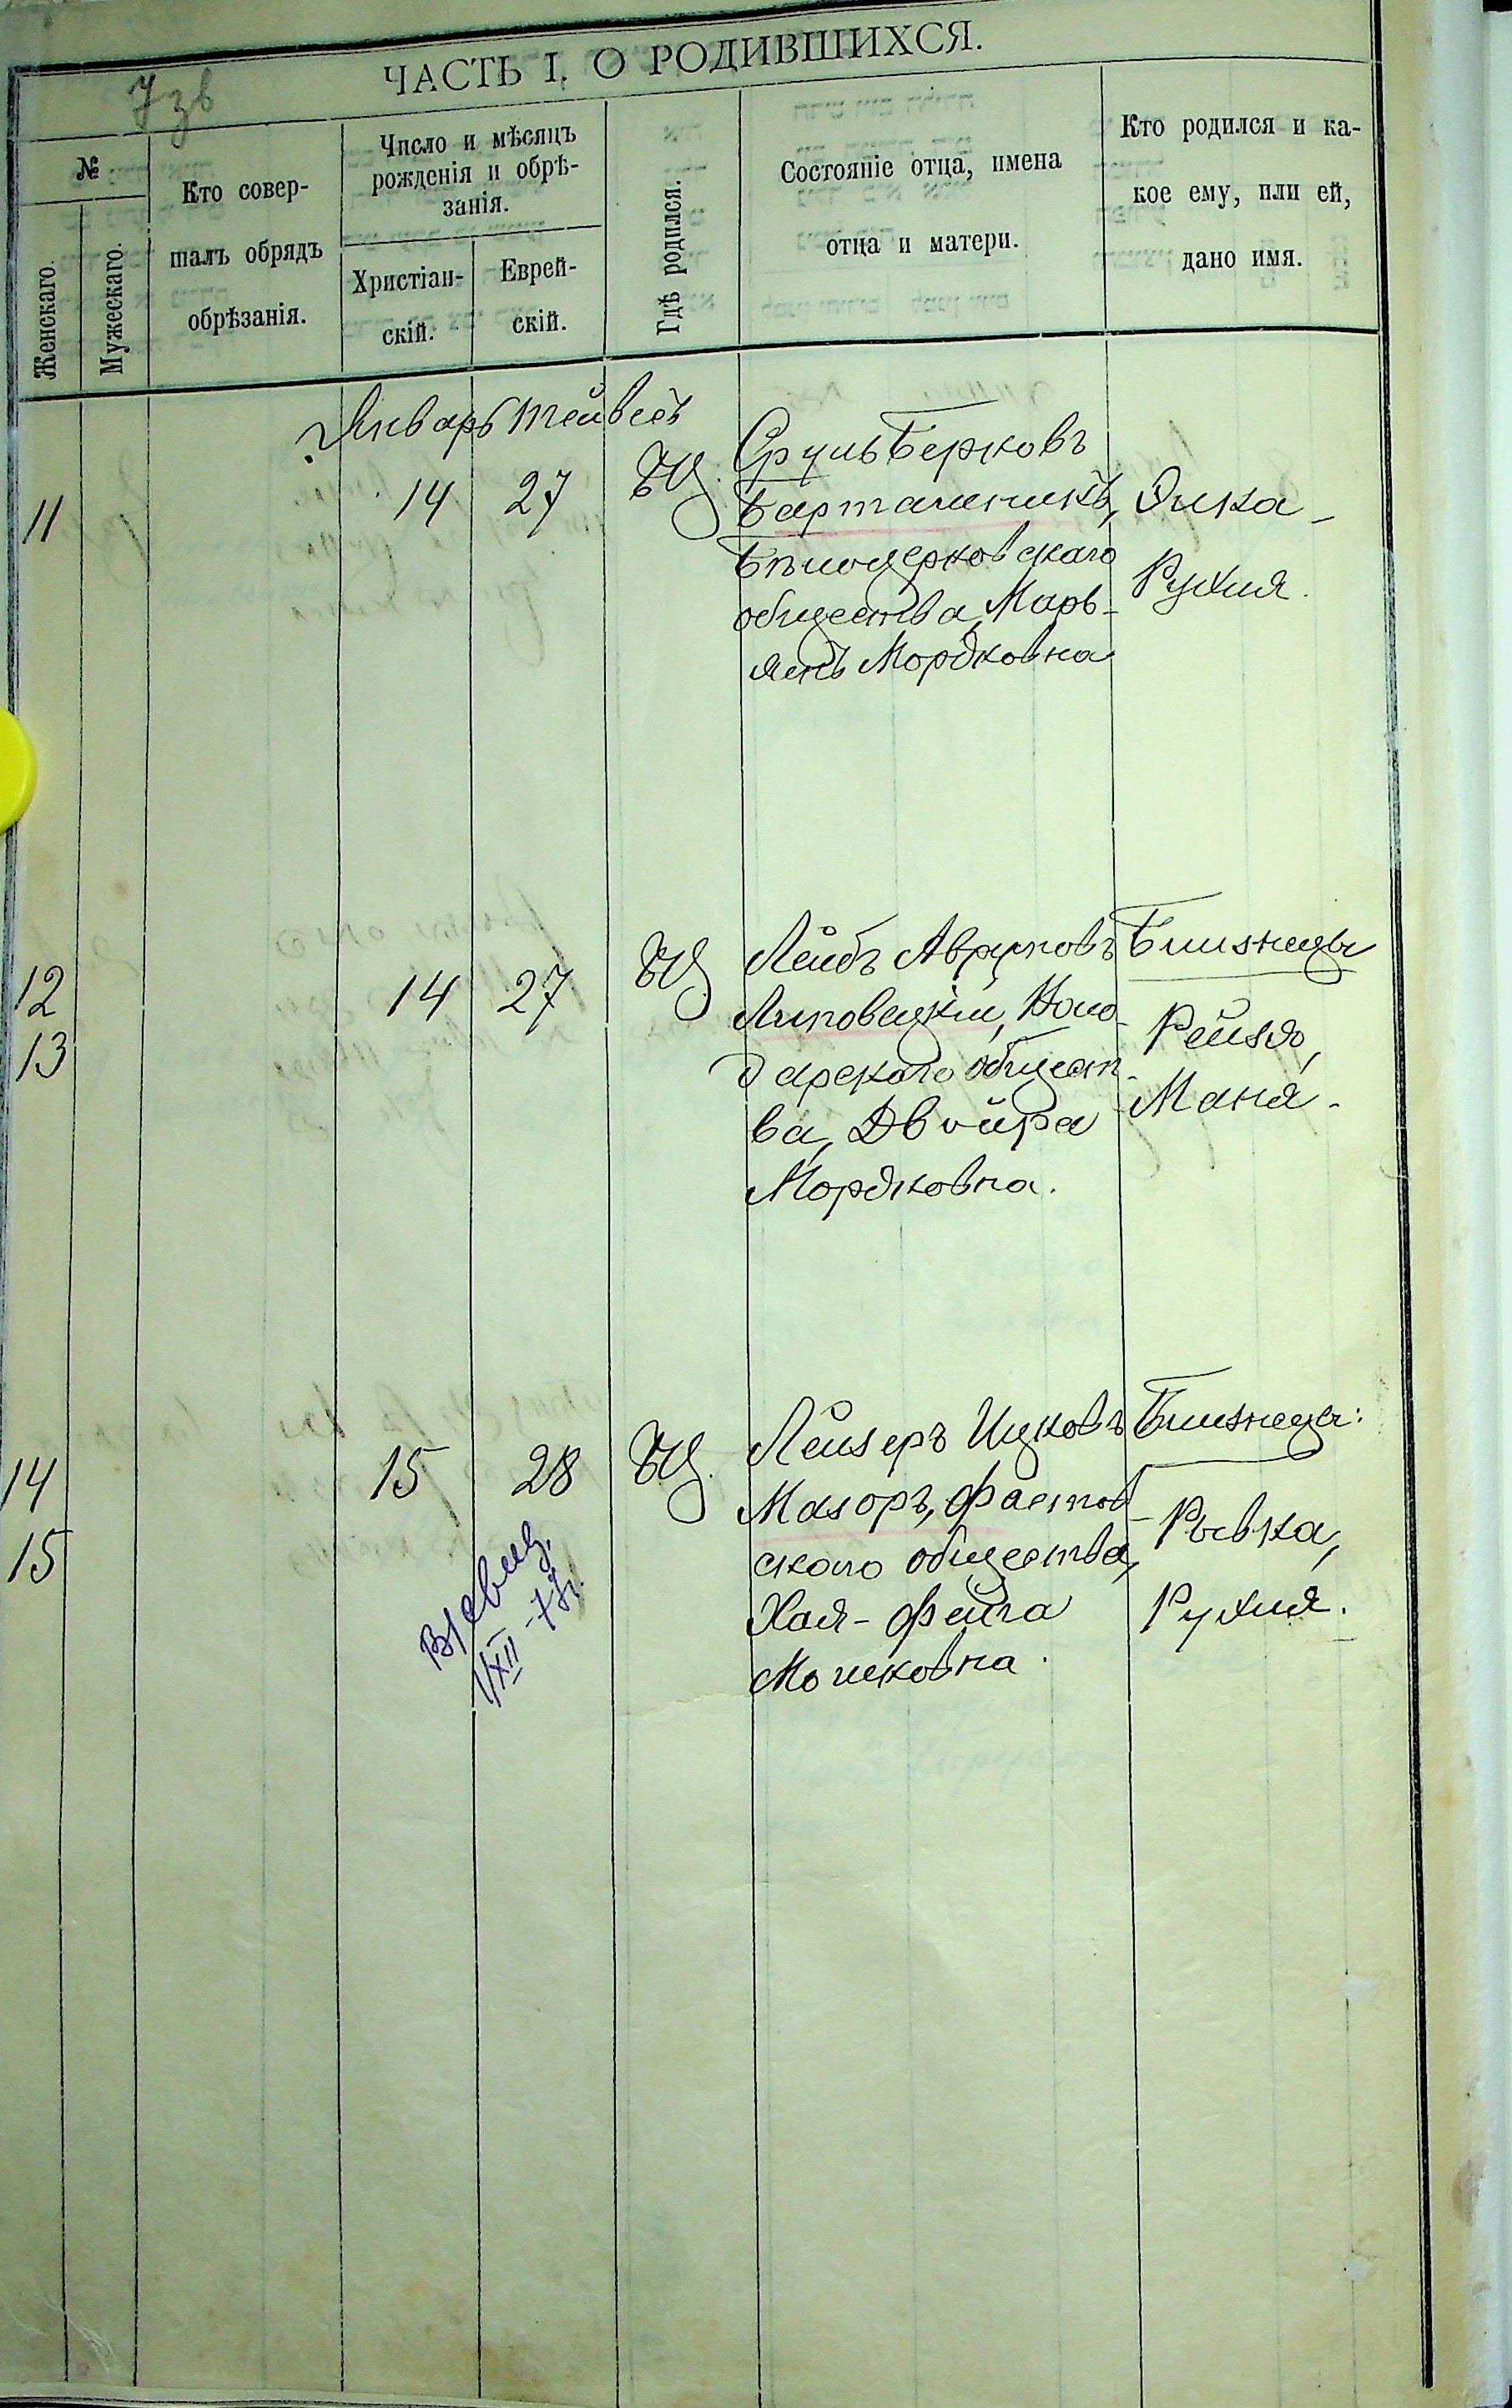 ЧАСТЬ I. О РОДИВШИХСЯ.
№
Женскаго.
Мужескаго.
Кто совер-
шалъ обрядъ
обрѣзанія.
Число и мѣсяцъ
рожденія и обрѣ-
занія.
Христіан-
скій.
Еврей-
скій.
Гдѣ родился.
Состояніе отца, имена
отца и матери.
Кто родился и ка-
кое ему, или ей,
дано имя.
Январь Тейвесъ
11
14 27 БЦ.
Сруль Берковъ
Бѣлоцерковскаго
общества, Марь-
ямъ Мордковна
Элка-
Рухля.
12
13
14 27 БЦ
Лейбъ Аврумовъ
Липовецкій, Ново
дарскаго общест-
ва, Двойра
Мордковна.
Близнецы
Рейзя,
Маня.
14
15
15 28 БЦ.
Лейзеръ Ицковъ
Мазоръ, Фастов-
скаго общества,
Хая-Фейга
Мошковна.
Близнецы:
Рывка,
Рухля.